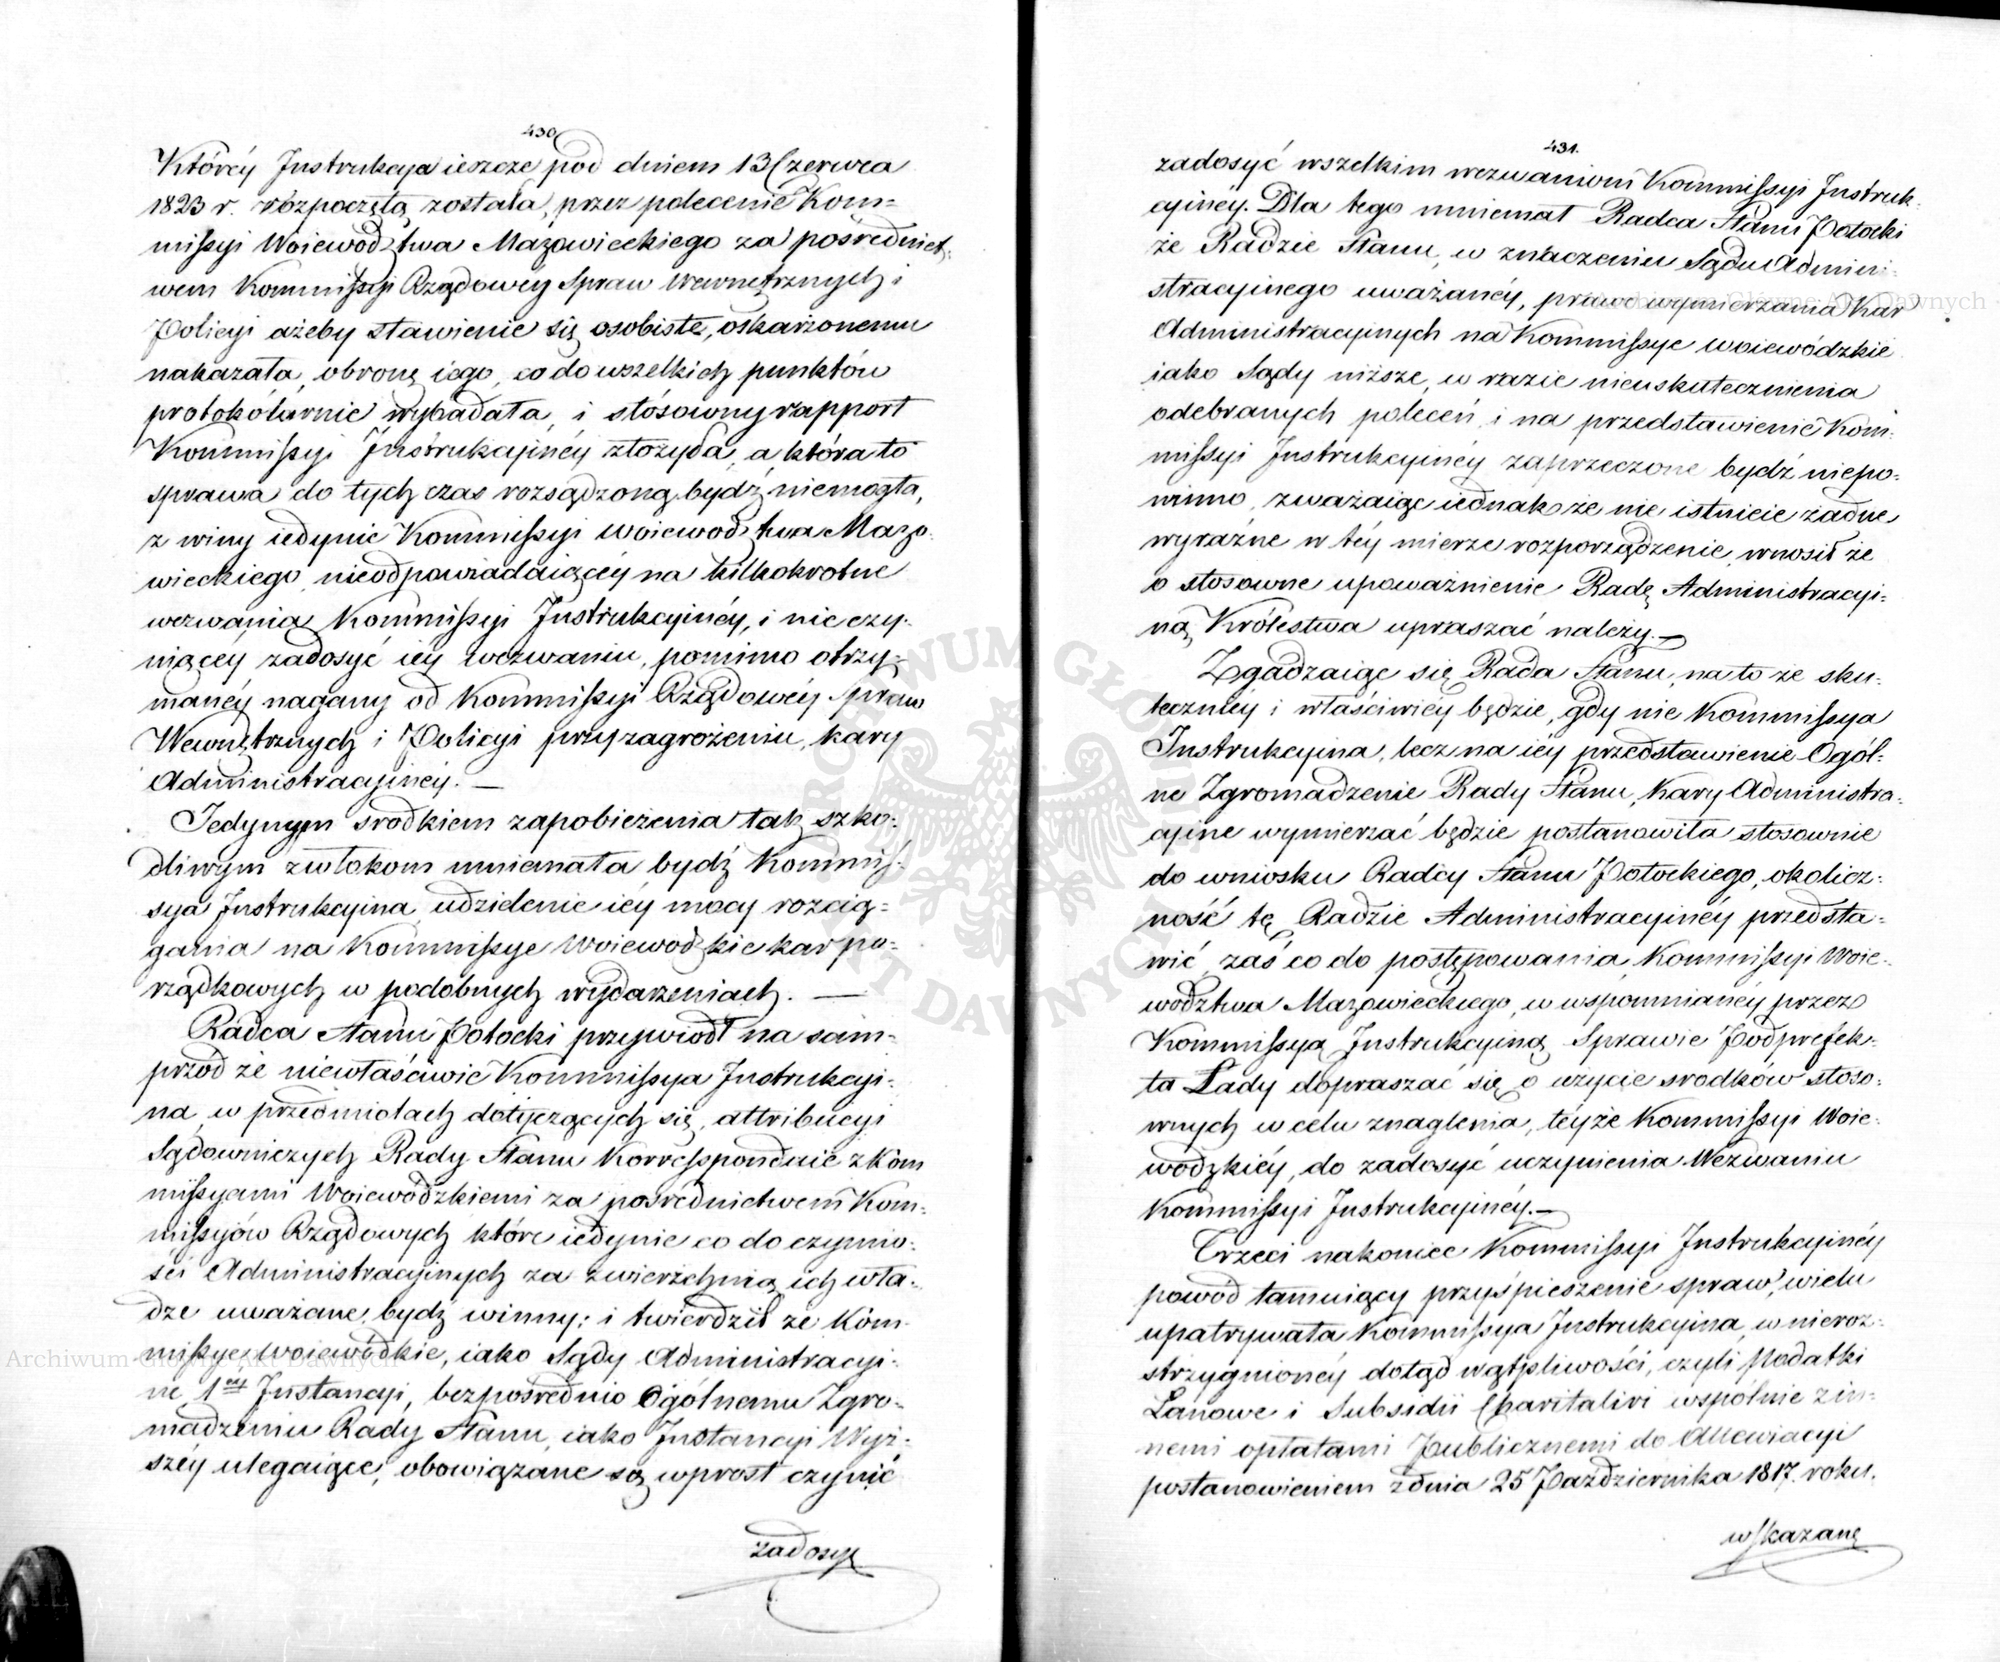 430
Któréy Instrukcya ieszcze pod dniem 13 Czerwca
1823 r. rozpoczętą została, przez polecenie Kom=
missyi Woiewodztwa Mazowieckiego za pośrednict=
wem Kommissyi Rządowéy Spraw Wewnętrznych i
Policyi ażeby stawienie się osobiste, oskarżonemu
nakazała, obronę iego, co do wszelkich punktów
protokólarnie wybadała, i stósowny rapport
Kommissyi Instrukcyinéy złożyła, a która to
sprawa do tych czas rozsądzoną bydź niemogła,
z winy iedynie Kommissyi Woiewodztwa Mazo=
wieckiego, nieodpowiadaiącéy na kilkokrotne
wezwania Kommissyi Instrukcyinéy, i nie czy=
niącéy zadosyć iéy wezwaniu, pomimo otrzy=
manéy nagany od Kommissyi Rządowéy Spraw
Wewnętrznych i Policyi przy zagrożeniu, kary
Administracyinéy. —
Jedynym srodkiem zapobieżenia tak szko=
dliwym zwłokom mniemała bydź Kommis=
sya Instrukcyina, udzielenie iéy mocy rozcią=
gania na Kommissye Woiewodzkie kar po=
rządkowych w podobnych wydarzeniach. —
Radca Stanu Potocki przywiodł na sam=
przod że niewłaściwie Kommissya Instrukcyi=
na w przedmiotach dotyczących się, attribucyi
Sądowniczych Rady Stanu Korresponduie z Kom
missyami Woiewódzkiemi za pośrednictwem Kom=
missyów Rządowych które iedynie co do czynno=
ści Administracyinych za zwierzchnią ich wła=
dze uważane bydź winny; i twierdził że Kom=
missye Woiewódkie, iako Sądy Administracyi=
ne 1éy Instancyi, bezpośrednio Ogólnemu Zgro=
madzeniu Rady Stanu, iako Instancyi Wyż=
széy ulegaiące, obowiązane są wprost czynić
zadosyć
431.
zadosyć wszelkim wezwaniom Kommissyi Instruk=
cyinéy. Dla tego mniemał Radca Stanu Potocki
że Radzie Stanu, w znaczeniu Sądu Admini=
stracyinego uważanéy, prawo wymierzania Kar
Administracyinych na Kommissye woiewódzkie
iako Sądy niższe, w razie nieuskutecznienia
odebranych poleceń, i na przedstawienie Kom=
missyi Instrukcyinéy zaprzeczone bydź niepo=
winno, zważaiąc iednak że nie istnieie żadne
wyraźne w téy mierze rozporządzenie, wnosił że
o stosowne upoważnienie Radę Administracyi=
ną Królestwa upraszać należy. —
Zgadzaiąc się Rada Stanu, na to że sku=
teczniéy i właściwiéy będzie, gdy nie Kommissya
Instrukcyina, lecz na iéy przedstawienie Ogól=
ne Zgromadzenie Rady Stanu, Kary Administra=
cyine wymierzać będzie postanowiła stosownie
do wniosku Radcy Stanu Potockiego, okolicz=
ność tę Radzie Administracyinéy przedsta=
wić, zaś co do postępowania Kommissyi Woie=
wodztwa Mazowieckiego, w wspomnianéy przez
Kommissyą Instrukcyiną Sprawie Podprefek=
ta Lady dopraszać się o użycie srodków stoso=
wnych w celu znaglenia, téyże Kommissyi Woie=
wodzkiéy, do zadosyć uczynienia Wezwaniu
Kommissyi Instrukcyinéy. —
Trzeci nakoniec Kommissyi Instrukcyinéy
powód tamuiący przyśpieszenie spraw, wielu
upatrywała Kommissya Instrukcyina, w nieroz=
strzygnionéy dotąd wątpliwości, czyli Podatki
Łanowe i Subsidii Charitativi wspólnie z in=
nemi opłatami Publicznemi do Allewiacyi
postanowieniem z dnia 25 Października 1817. roku.
wskazane
Archiwum Główne Akt Dawnych
Archiwum Główne Akt Dawnych
ARCHIWUM GŁÓWNE AKT DAWNYCH